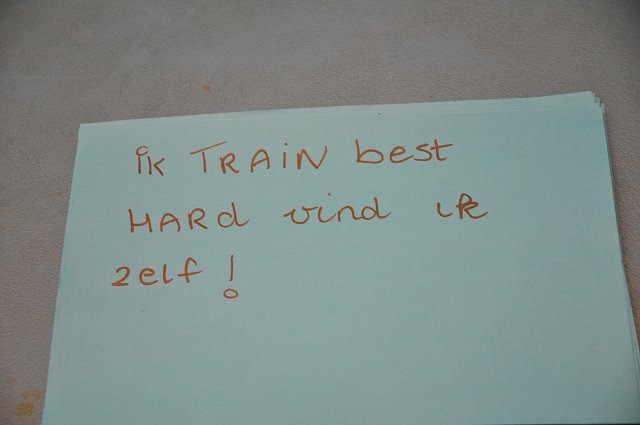 ik TRAiN best
HARd vind ik
zelf!